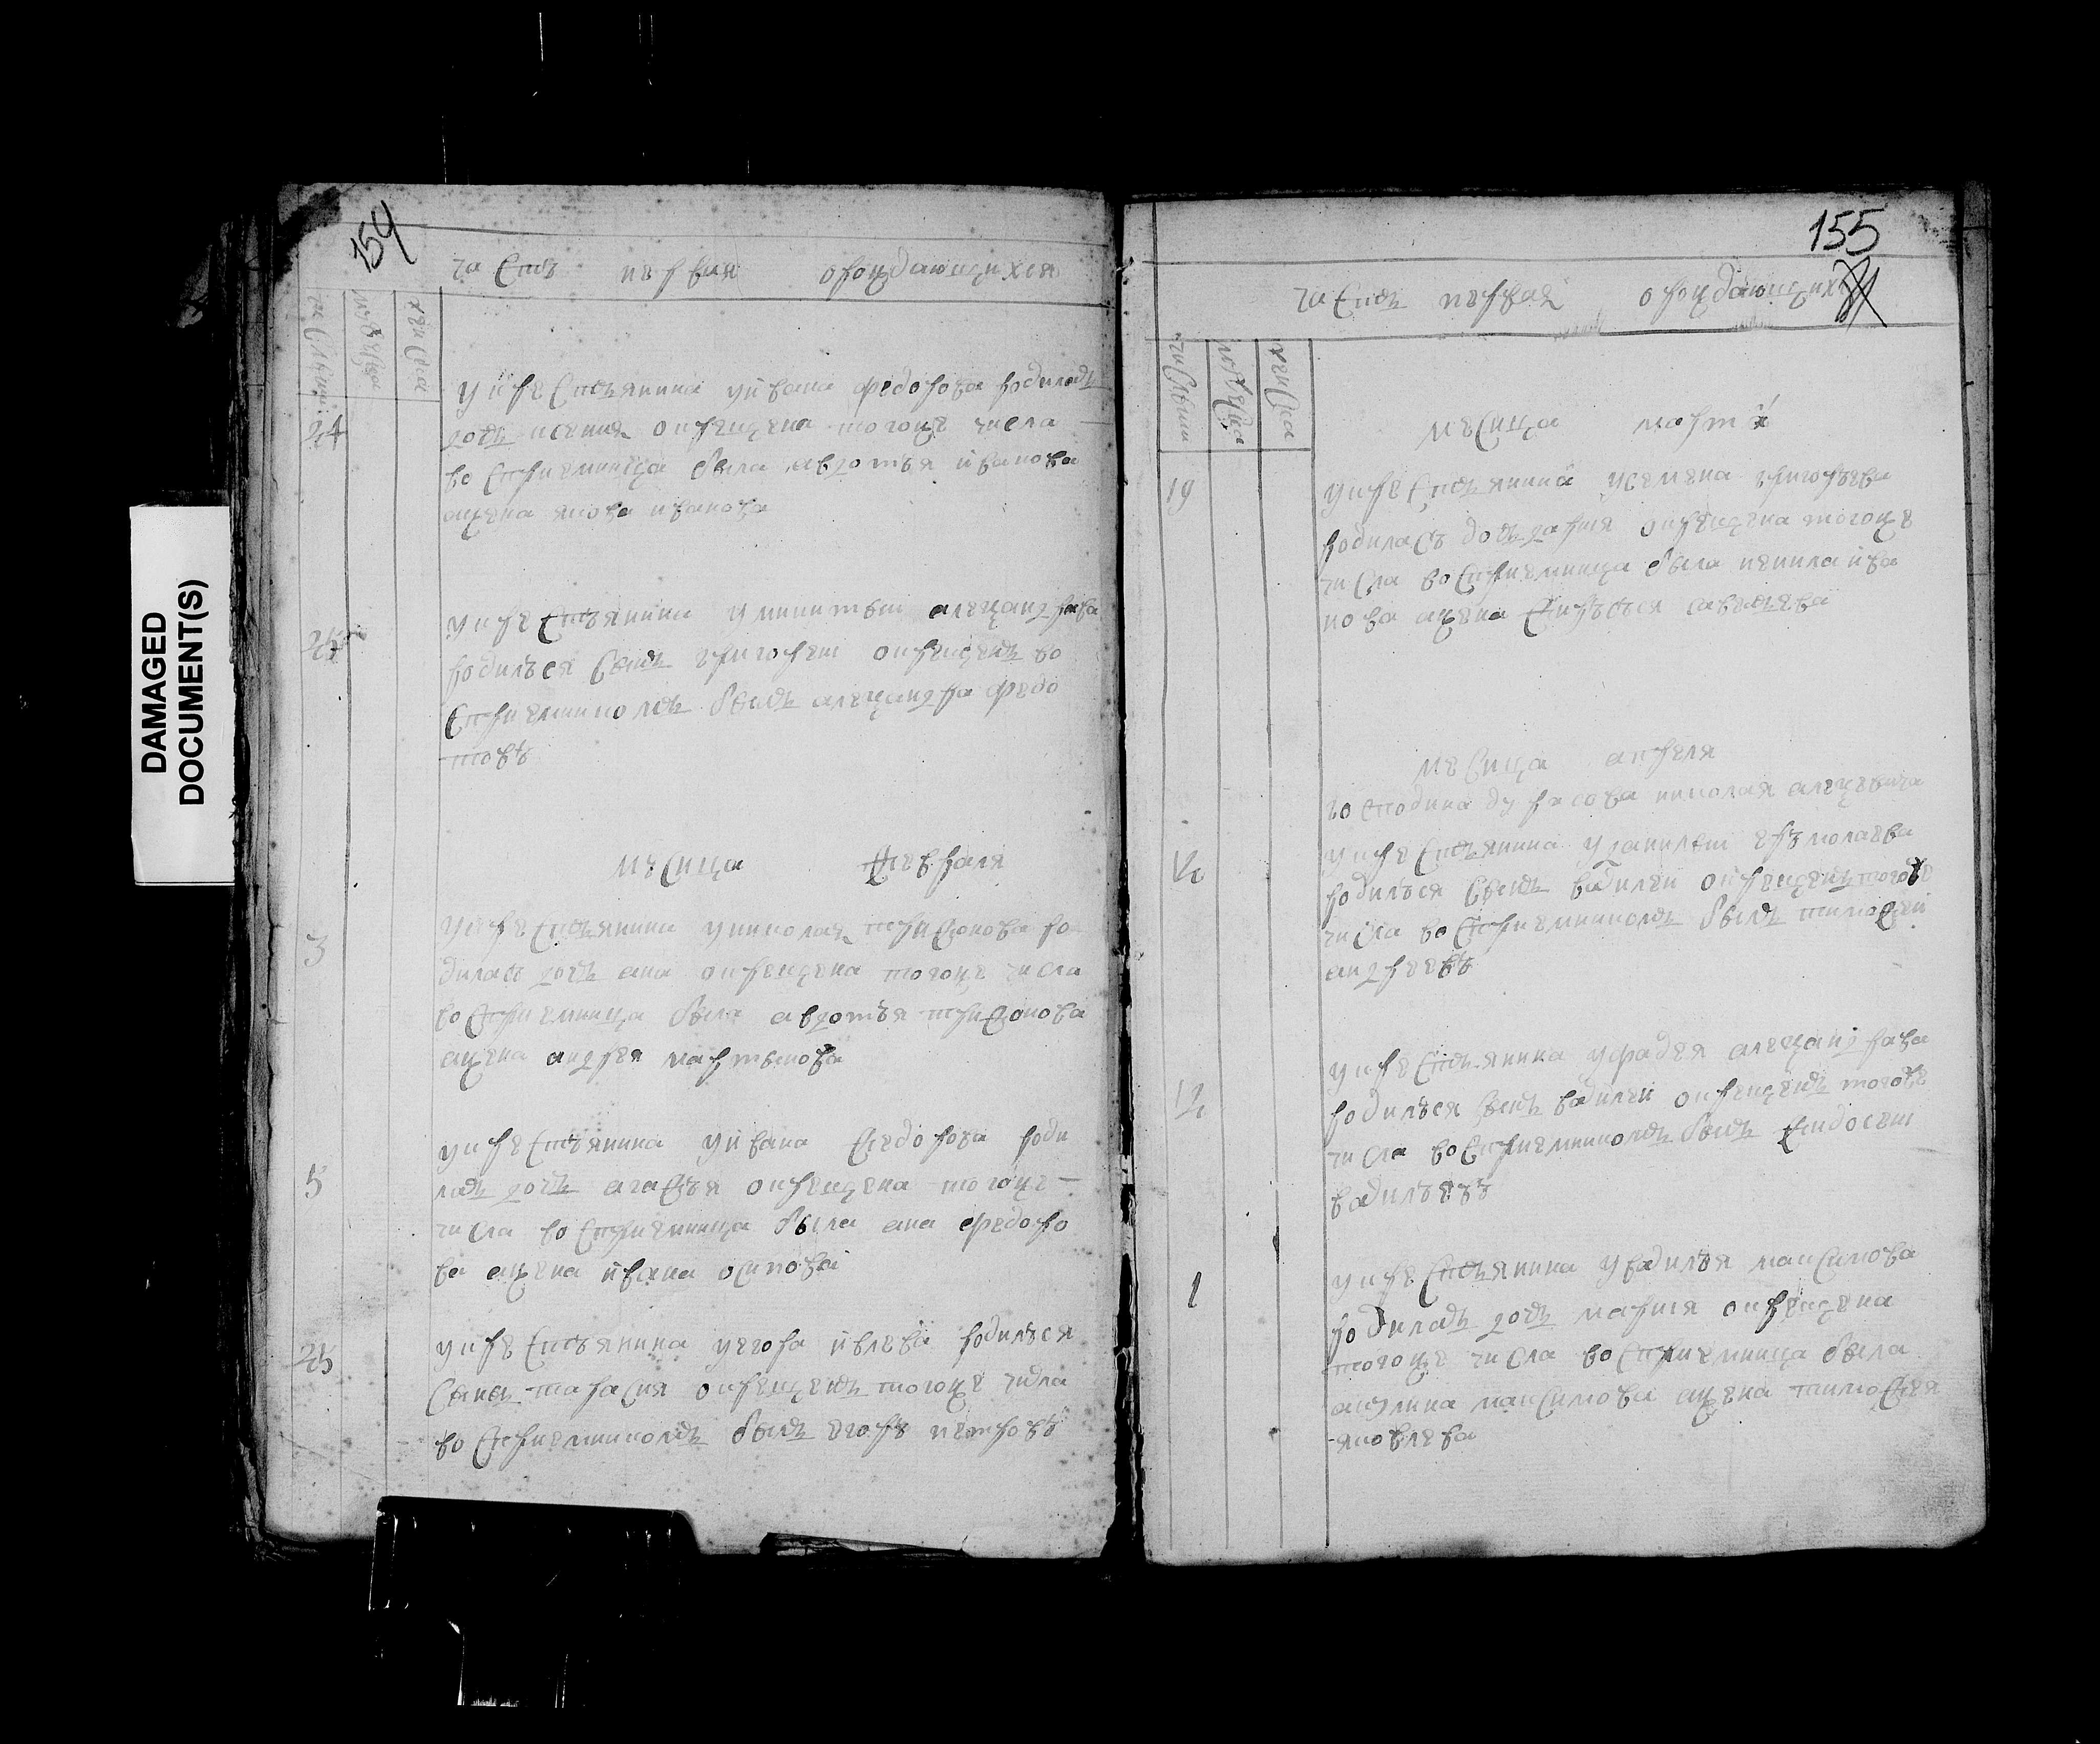 DAMAGED
DOCUMENT(S)
154
часть первая о рождающихся
число
мужеска
женска
24
у крестьянина у ивана федорова родиласъ
дочь ксения окрещена тогоже числа
восприемница была авдотья иванова
жена якова иванова
25
у крестьянина у никитыи александрова
родился сынъ григореи окрещенъ во
сприемникомъ былъ александра федо
товъ
месяца февраля
3
у крестьянина у николая трифонова ро
дилась дочь ана окрещена тогоже числа
восприемница была авдотья трифонова
жена андрея мартынова
5
у крестьянина у ивана федорова роди
лась дочь агафья окрещена тогоже
числа восприемница была ана федоро
ва жена ивана осипова
25
у крестьянина у егора ивлева родился
сынъ тарасия окрещенъ тогоже числа
восприемникомъ былъ егоръ петровъ
155
часть первая о рождающихся
число
мужеска
женска
месяца марта
19
у крестьянина у семена григорьева
родилась дочь дария окрещена тогоже
числа восприемница была ива
нова жена савельева
месяца апреля
господина николая алексеевича
у крестьянина у данилыи ермолаева
родился сынъ василеи окрещенъ тогоже
числа восприемникомъ былъ тимофеи
андреевъ
12
у крестьянина у фадея александрова
родился сынъ василеи окрещенъ тогоже
числа восприемникомъ былъ
васильевъ
1
у крестьянина у василья максимова
родилась дочь мария окрещена
тогоже числа восприемница была
акулина максимова жена тимофея
яковлева